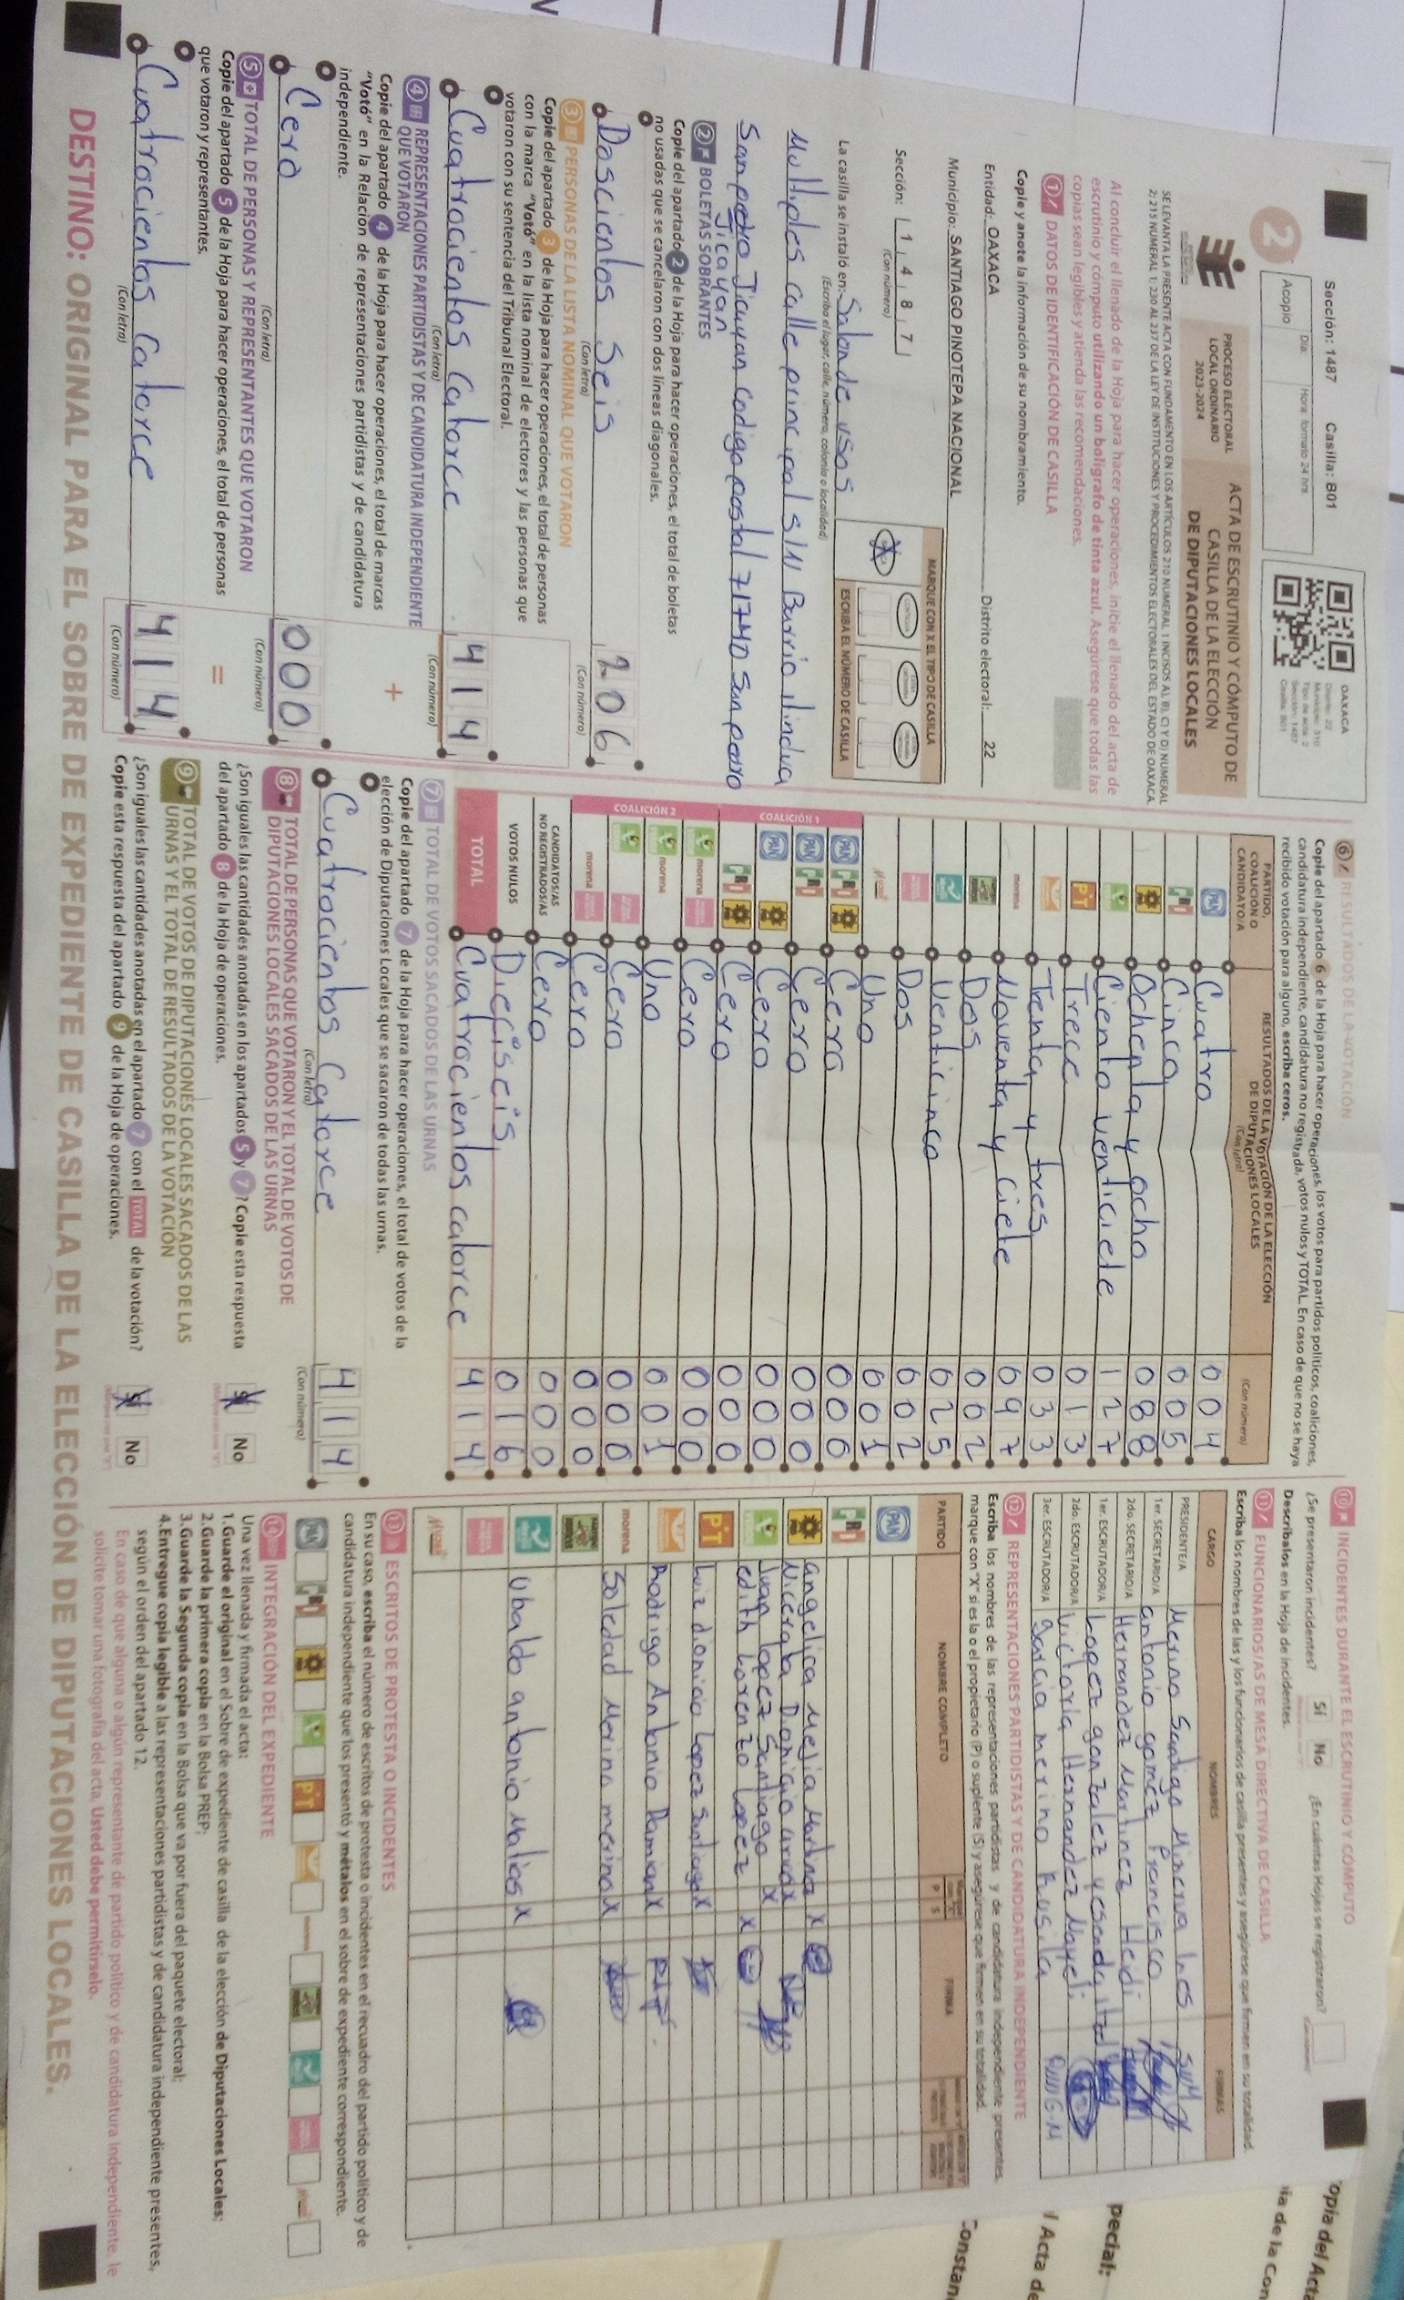 Sección: 1487 Casilla: B01
2
Día Hora formato 24 hrs
Acopio
OAXACA
PROCESO ELECTORAL
LOCAL ORDINARIO
2023-2024
ACTA DE ESCRUTINIO Y CÓMPUTO DE
CASILLA DE LA ELECCIÓN
DE DIPUTACIONES LOCALES
SE LEVANTA LA PRESENTE ACTA CON FUNDAMENTO EN LOS ARTÍCULOS
Al concluir el llenado de la Hoja para hacer operaciones, inicie el llenado del acta de
escrutinio y cómputo utilizando un bolígrafo de tinta azul. Asegúrese que todas las
copias sean legibles y atienda las recomendaciones.
1 DATOS DE IDENTIFICACIÓN DE CASILLA
Copie y anote la información de su nombramiento.
Entidad: OAXACA Distrito electoral: 22
Municipio: SANTIAGO PINOTEPA NACIONAL
Sección: 1 4 8 7
(Con número)
MARQUE CON X EL TIPO DE CASILLA
ESCRIBA EL NÚMERO DE CASILLA
La casilla se instaló en: Salon de usos
(Escriba el lugar, calle, número, colonia o localidad)
Multiples calle principal S/N Barrio lindua
San pedro Jicayan codigo postal 71740 San pedro
Jicayan
2 BOLETAS SOBRANTES
Copie del apartado 2 de la Hoja para hacer operaciones, el total de boletas
no usadas que se cancelaron con dos líneas diagonales.
Doscientos seis 206
(Con letra) (Con número)
3 PERSONAS DE LA LISTA NOMINAL QUE VOTARON
Copie del apartado 3 de la Hoja para hacer operaciones, el total de personas
con la marca "Votó" en la lista nominal de electores y las personas que
votaron con su sentencia del Tribunal Electoral.
Cuatrocientos Catorce 414
(Con letra) (Con número)
4 REPRESENTACIONES PARTIDISTAS Y DE CANDIDATURA INDEPENDIENTE
QUE VOTARON
Copie del apartado 4 de la Hoja para hacer operaciones, el total de marcas
"Votó" en la Relación de representaciones partidistas y de candidatura
independiente.
+
Cero 000
(Con letra) (Con número)
5 TOTAL DE PERSONAS Y REPRESENTANTES QUE VOTARON
Copie del apartado 5 de la Hoja para hacer operaciones, el total de personas
que votaron y representantes.
=
Cuatrocientos Catorce 414
(Con letra) (Con número)
6 RESULTADOS DE LA VOTACIÓN
Copie del apartado 6 de la Hoja para hacer operaciones, los votos para partidos políticos, coaliciones,
candidatura independiente, candidatura no registrada, votos nulos y TOTAL. En caso de que no se haya
recibido votación para alguno, escriba ceros.
PARTIDO,
COALICIÓN O
CANDIDATO/A
RESULTADOS DE LA VOTACIÓN DE LA ELECCIÓN
DE DIPUTACIONES LOCALES
(Con letra) (Con número)
PAN Cuatro 004
PRI Cinco 005
Ochenta y ocho 088
Ciento venticiete 127
PT Trece 013
Trenta y tres 033
morena Noventa y Ciete 097
Dos 002
Venticinco 025
Dos 002
Uno 001
COALICIÓN 1
PAN PRI Cero 000
PAN PRI Cero 000
PAN Cero 000
PRI Cero 000
COALICIÓN 2
morena Cero 000
morena Uno 001
Cero 000
morena Cero 000
CANDIDATOS/AS
NO REGISTRADOS/AS Cero 000
VOTOS NULOS Dieciseis 016
TOTAL Cuatrocientos catorce 414
7 TOTAL DE VOTOS SACADOS DE LAS URNAS
Copie del apartado 7 de la Hoja para hacer operaciones, el total de votos de la
elección de Diputaciones Locales que se sacaron de todas las urnas.
Cuatrocientos Catorce 414
(Con letra) (Con número)
8 TOTAL DE PERSONAS QUE VOTARON Y EL TOTAL DE VOTOS DE
DIPUTACIONES LOCALES SACADOS DE LAS URNAS
¿Son iguales las cantidades anotadas en los apartados 5 y 7? Copie esta respuesta
del apartado 8 de la Hoja de operaciones.
Sí No
9 TOTAL DE VOTOS DE DIPUTACIONES LOCALES SACADOS DE LAS
URNAS Y EL TOTAL DE RESULTADOS DE LA VOTACIÓN
¿Son iguales las cantidades anotadas en el apartado 7 con el TOTAL de la votación?
Copie esta respuesta del apartado 9 de la Hoja de operaciones.
Sí No
10 INCIDENTES DURANTE EL ESCRUTINIO Y CÓMPUTO
¿Se presentaron incidentes? Sí No ¿En cuántas Hojas se registraron?
Descríbalos en la Hoja de incidentes.
11 FUNCIONARIOS/AS DE MESA DIRECTIVA DE CASILLA
Escriba los nombres de las y los funcionarios de casilla presentes y asegúrese que firmen en su totalidad.
CARGO NOMBRES FIRMAS
PRESIDENTE/A Merino Santiago Minerva Ines
1er. SECRETARIO/A antonio gomez Francisco
2do. SECRETARIO/A Hernandez Martinez Heidi
1er. ESCRUTADOR/A Lopez gonzalez yesenda
2do. ESCRUTADOR/A Victoria Hernandez Nayeli
3er. ESCRUTADOR/A Garcia merino Rusila
12 REPRESENTACIONES PARTIDISTAS Y DE CANDIDATURA INDEPENDIENTE
Escriba los nombres de las representaciones partidistas y de candidatura independiente presentes,
marque con "X" si es la o el propietario (P) o suplente (S) y asegúrese que firmen en su totalidad.
PARTIDO NOMBRE COMPLETO P S FIRMA
PAN
PRI
angelica Mejia Martina X
Nicerata Dionicio X
Juan lopez Santiago X
edith lorenzo lopez X
PT Luiz dionicio lopez Santiago X
Rodrigo Antonio Damian X
morena Soledad Merino merino X
Ubaldo antonio Matias X
13 ESCRITOS DE PROTESTA O INCIDENTES
En su caso, escriba el número de escritos de protesta o incidentes en el recuadro del partido político y de
candidatura independiente que los presentó y métalos en el sobre de expediente correspondiente.
PAN PRI PT morena
14 INTEGRACIÓN DEL EXPEDIENTE
Una vez llenada y firmada el acta:
1.Guarde el original en el Sobre de expediente de casilla de la elección de Diputaciones Locales;
2.Guarde la primera copia en la Bolsa PREP;
3.Guarde la Segunda copia en la Bolsa que va por fuera del paquete electoral;
4.Entregue copia legible a las representaciones partidistas y de candidatura independiente presentes,
según el orden del apartado 12.
En caso de que alguna o algún representante de partido político y de candidatura independiente, le
solicite tomar una fotografía del acta, Usted debe permitírselo.
DESTINO: ORIGINAL PARA EL SOBRE DE EXPEDIENTE DE CASILLA DE LA ELECCIÓN DE DIPUTACIONES LOCALES.
opia del Acta
ia de la Con
pecial:
l Acta de
Constan